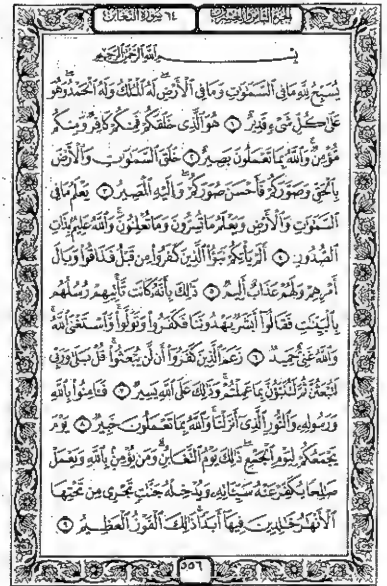 الجزء الثامن والعشرون ٦٤ سورة التغابن
بسم الله الرحمن الرحيم
يُسَبِّحُ لِلَّهِ مَا فِي السَّمَٰوَٰتِ وَمَا فِي الْأَرْضِ لَهُ الْمُلْكُ وَلَهُ الْحَمْدُ وَهُوَ
عَلَىٰ كُلِّ شَىْءٍ قَدِيرٌ ١ هُوَ الَّذِى خَلَقَكُمْ فَمِنكُمْ كَافِرٌ وَمِنكُم
مُّؤْمِنٌ وَاللَّهُ بِمَا تَعْمَلُونَ بَصِيرٌ ٢ خَلَقَ السَّمَٰوَٰتِ وَالْأَرْضَ
بِالْحَقِّ وَصَوَّرَكُمْ فَأَحْسَنَ صُوَرَكُمْ وَإِلَيْهِ الْمَصِيرُ ٣ يَعْلَمُ مَا فِي
السَّمَٰوَٰتِ وَالْأَرْضِ وَيَعْلَمُ مَا تُسِرُّونَ وَمَا تُعْلِنُونَ وَاللَّهُ عَلِيمٌ بِذَاتِ
الصُّدُورِ ٤ أَلَمْ يَأْتِكُمْ نَبَؤُا الَّذِينَ كَفَرُوا مِن قَبْلُ فَذَاقُوا وَبَالَ
أَمْرِهِمْ وَلَهُمْ عَذَابٌ أَلِيمٌ ٥ ذَٰلِكَ بِأَنَّهُ كَانَت تَّأْتِيهِمْ رُسُلُهُم
بِالْبَيِّنَٰتِ فَقَالُوا أَبَشَرٌ يَهْدُونَنَا فَكَفَرُوا وَتَوَلَّوا وَّاسْتَغْنَى اللَّهُ
وَاللَّهُ غَنِىٌّ حَمِيدٌ ٦ زَعَمَ الَّذِينَ كَفَرُوا أَن لَّن يُبْعَثُوا قُلْ بَلَىٰ وَرَبِّى
لَتُبْعَثُنَّ ثُمَّ لَتُنَبَّؤُنَّ بِمَا عَمِلْتُمْ وَذَٰلِكَ عَلَى اللَّهِ يَسِيرٌ ٧ فَـَٔامِنُوا بِاللَّهِ
وَرَسُولِهِ وَالنُّورِ الَّذِى أَنزَلْنَا وَاللَّهُ بِمَا تَعْمَلُونَ خَبِيرٌ ٨ يَوْمَ
يَجْمَعُكُمْ لِيَوْمِ الْجَمْعِ ذَٰلِكَ يَوْمُ التَّغَابُنِ وَمَن يُؤْمِن بِاللَّهِ وَيَعْمَلْ
صَٰلِحًا يُكَفِّرْ عَنْهُ سَيِّـَٔاتِهِ وَيُدْخِلْهُ جَنَّٰتٍ تَجْرِى مِن تَحْتِهَا
الْأَنْهَٰرُ خَٰلِدِينَ فِيهَا أَبَدًا ذَٰلِكَ الْفَوْزُ الْعَظِيمُ ٩
٥٥٦